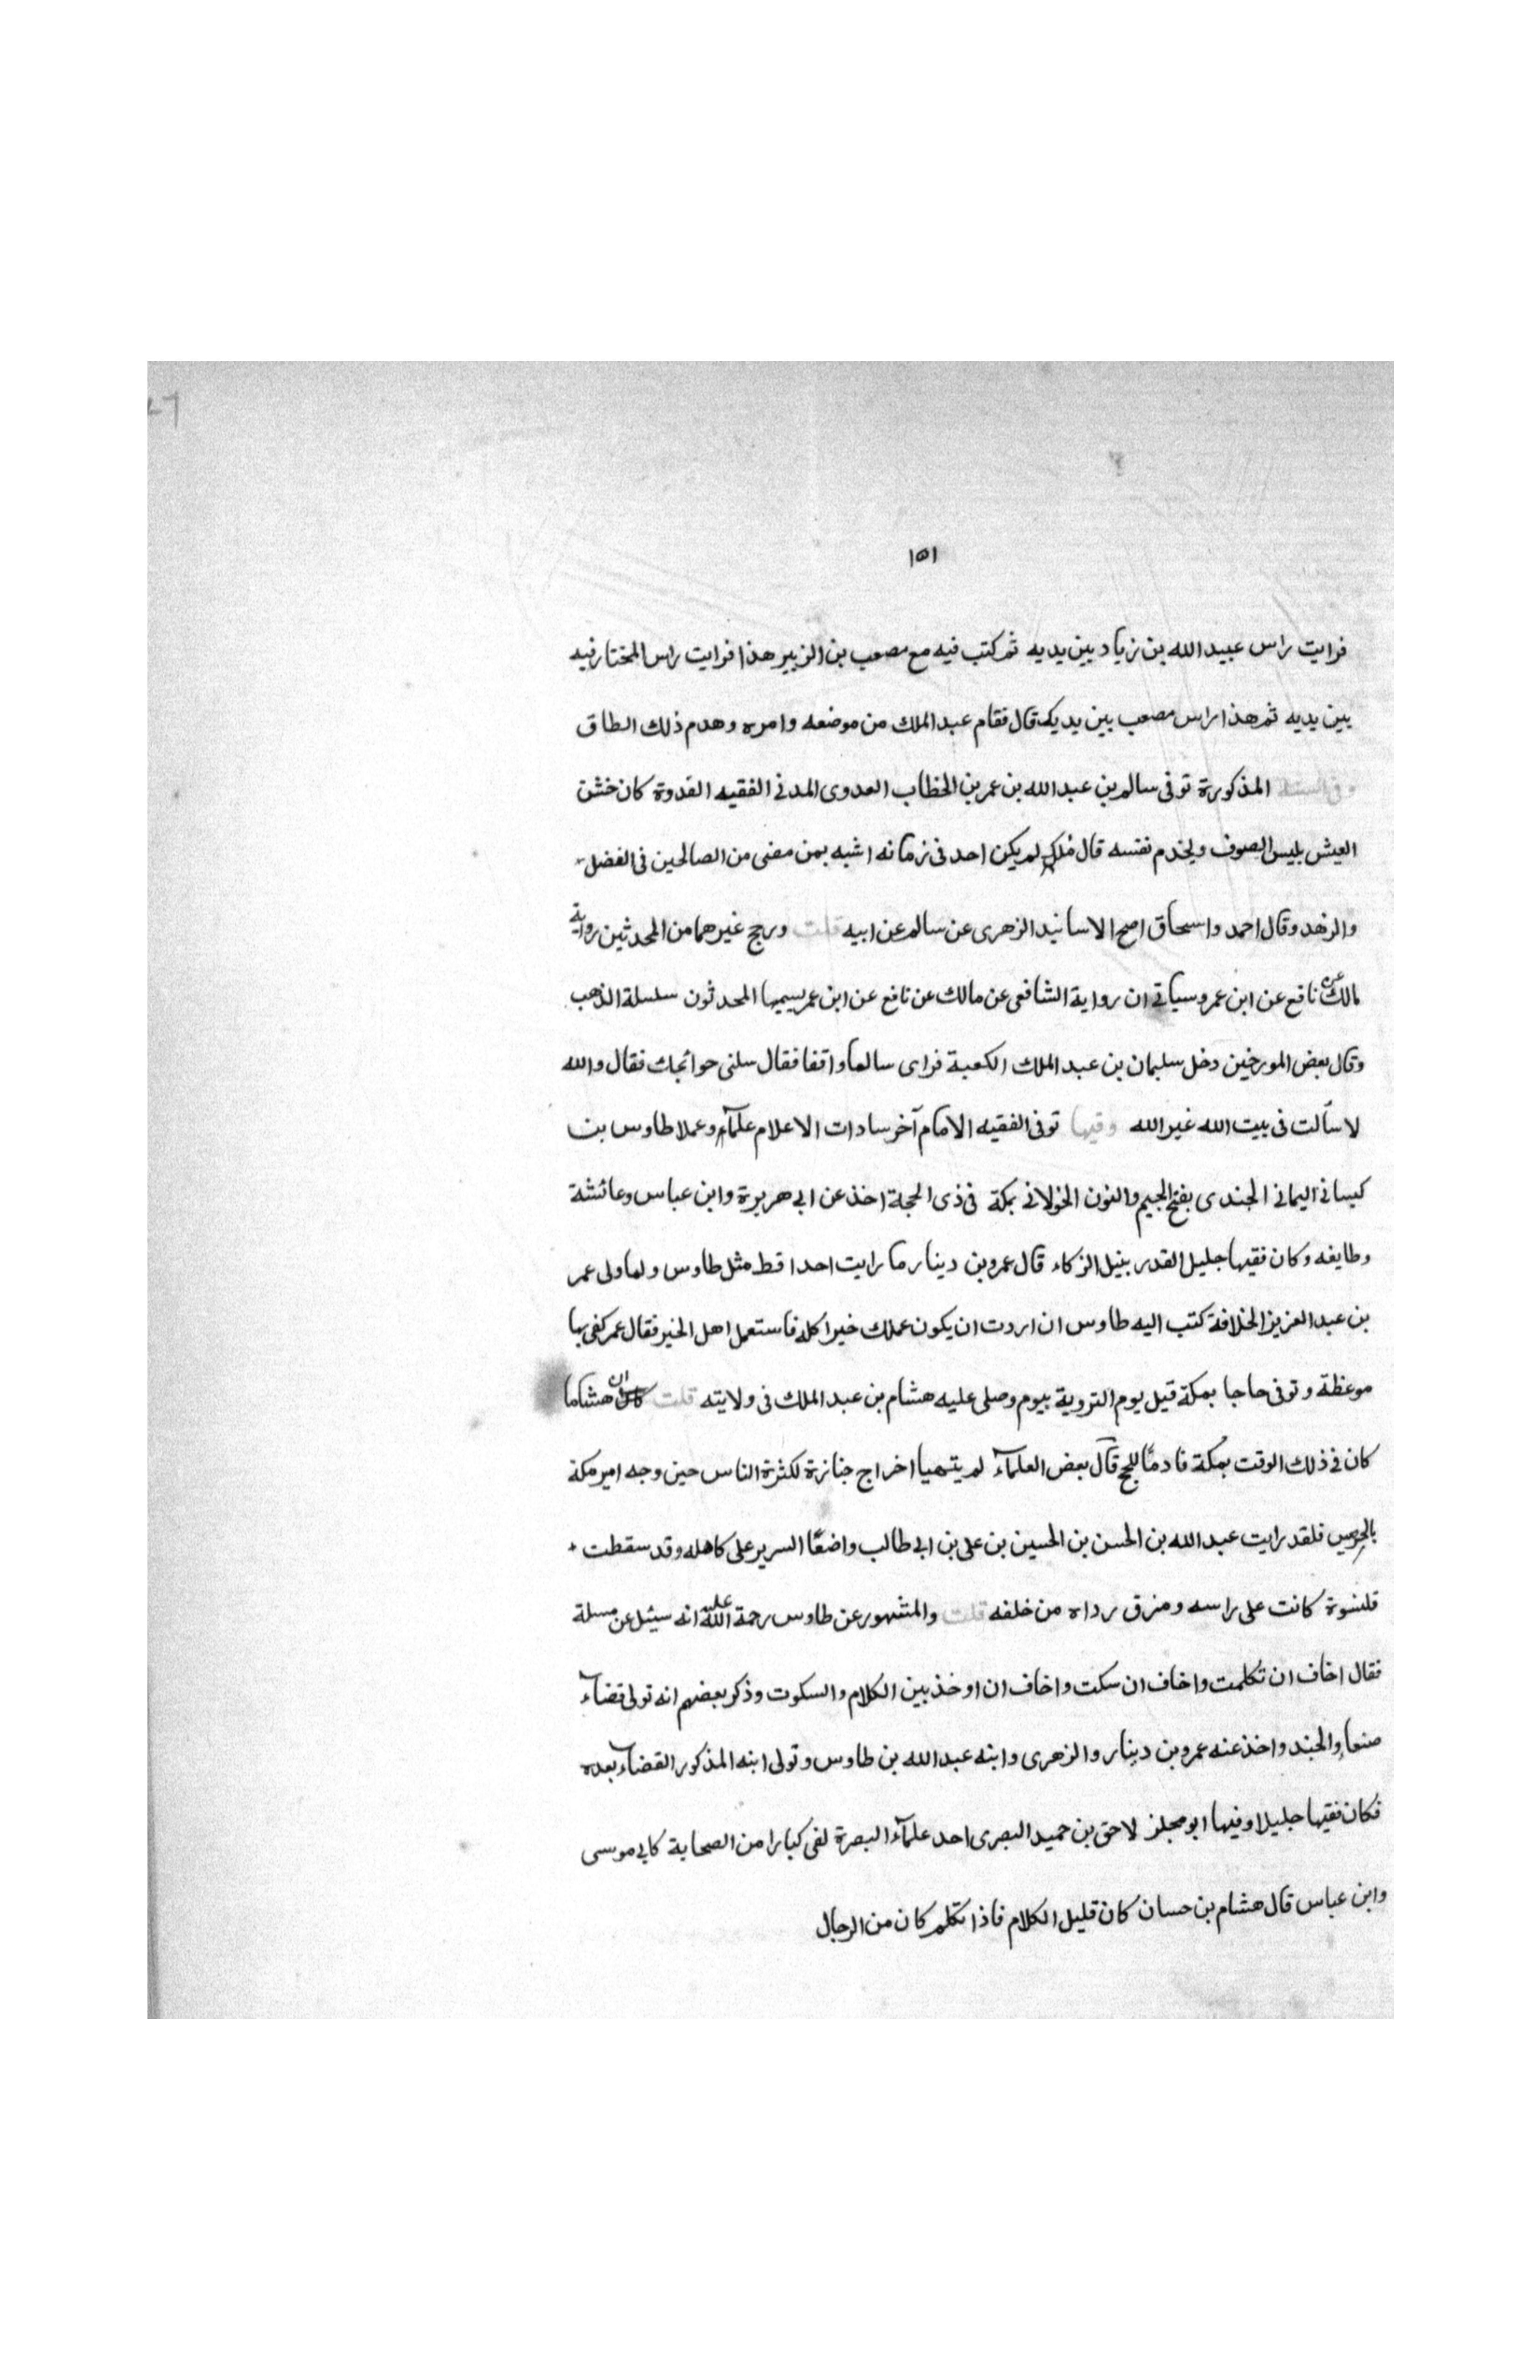 ١٥١
فرايت راس عبيد الله بن زياد بين يديه ثم كتب فيه مع مصعب بن الزبير هذا فرايت راس المختار فيه
بين يديه ثم هذا راس مصعب بين يديك قال فقام عبد الملك من موضعه وامره وهدم ذلك الطاق
وفى السنة المذكورة توفى سالم بن عبد الله بن عمر بن الخطاب العدوى المدنى الفقيه القدوة كان خشن
العيش يلبس الصوف ويخدم نفسه قال ملك لم يكن احد فى زمانه اشبه بمن مضى من الصالحين فى الفضل
والزهد وقال احمد واسحاق اصح الاسانيد الزهرى عن سالم عن ابيه قلت ورجح غيرهما من المحدثين رواية
مالك عن نافع عن ابن عمر وسياتى ان رواية الشافعى عن مالك عن نافع عن ابن عمر يسميها المحدثون سلسلة الذهب
وقال بعض المورخين دخل سليمان بن عبد الملك الكعبة فراى سالما واقفا فقال سلنى حوائجك فقال والله
لا سألت فى بيت الله غير الله وفيها توفى الفقيه الامام آخر سادات الاعلام علمآء وعملا طاوس بن
كيسانى اليمانى الجندى بفتح الجيم والنون الخولانى بمكة فى ذى الحجة اخذ عن ابى هريرة وابن عباس وعائشة
وطايفه وكان فقيها جليل القدر بنيل الزكاء قال عمرو بن دينار ما رايت احدا قط مثل طاوس ولما ولى عمر
بن عبد العزيز الخلافة كتب اليه طاوس ان اردت ان يكون عملك خيرا كله فاستعمل اهل الخير فقال عمر كفى بها
موعظة وتوفى حاجا بمكة قبل يوم التروية بيوم وصلى عليه هشام بن عبد الملك فى ولايته قلت ان هشاما
كان فى ذلك الوقت بمكة قادمًا للحج قال بعض العلمآء لم يتهيا اخراج جنازة لكثرة الناس حين وجه امير مكة
بالحرس فلقد رايت عبد الله بن الحسن بن الحسين بن على بن ابى طالب واضعًا السرير على كاهله وقد سقطت
قلنسوة كانت على راسه ومزق رداه من خلفه قلت والمشهور عن طاوس رحمة الله عليه انه سيئل عن مسلة
فقال اخاف ان تكلمت واخاف ان سكت واخاف ان اوخذ بين الكلام والسكوت وذكر بعضهم انه تولى قضاء
صنعا والجند واخذ عنه عمرو بن دينار والزهرى وابنه عبد الله بن طاوس وتولى ابنه المذكور القضاء بعده
فكان فقيها جليلا وفيها ابو مجلز لاحق بن حميد البصرى احد علمآء البصرة لقى كبارا من الصحابة كابى موسى
وابن عباس قال هشام بن حسان كان قليل الكلام فاذا تكلم كان من الرجال